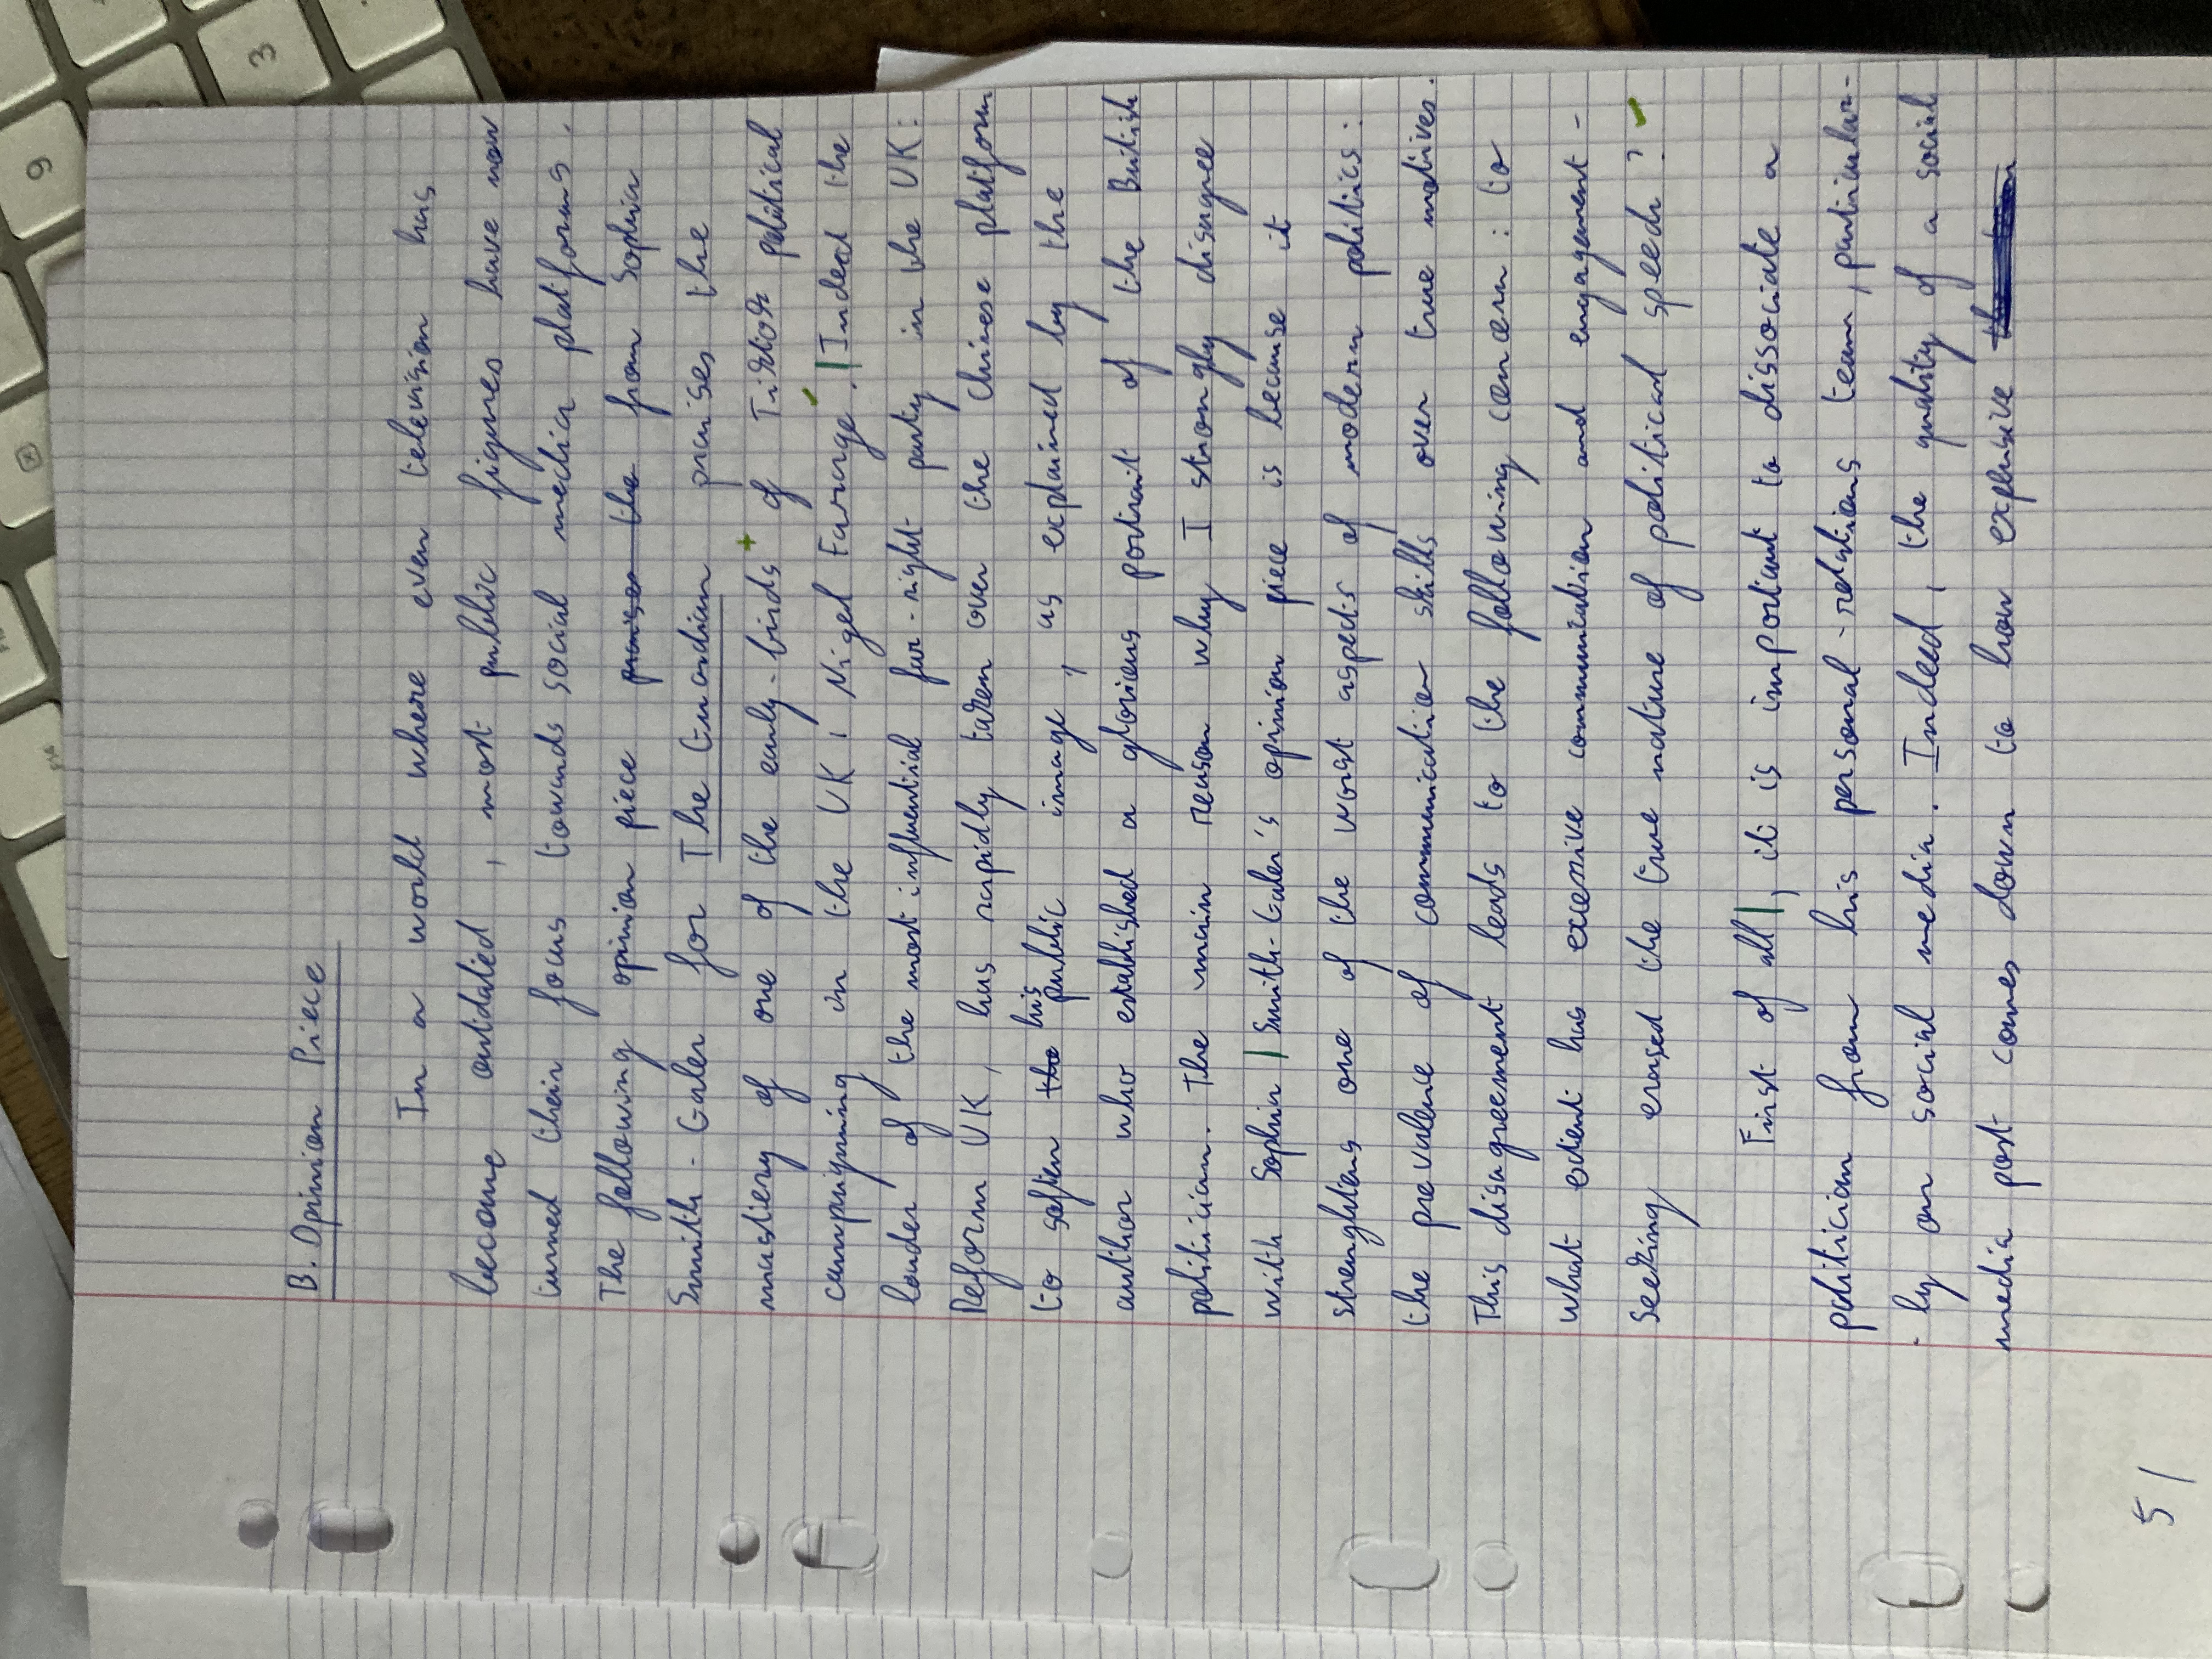 B. Opinion Piece
In a world where even television has
become outdated, most public figures have now
turned their focus towards social media platforms.
The following opinion piece praises the from Sophia
Smith-Galer for The Guardian praises the
mastery of one of the early-birds of TikTok political
campaigning in the UK, Nigel Farage. Indeed the
leader of the most influential far-right party in the UK:
Reform UK, has rapidly taken over the Chinese platform
to soften the his public image, as explained by the
author who established a glorious portrait of the British
politician. The main reason why I strongly disagree
with Sophia Smith-Galer's opinion piece is because it
strenghtens one of the worst aspects of modern politics:
the prevalence of communication skills over true motives.
This disagreement leads to the following concern: to
what extent has excessive communication and engagement-
seeking erased the true nature of political speech?
First of all, it is important to dissociate a
politician from his personal-relations team, particular-
-ly on social media. Indeed, the quality of a social
media post comes down to how explusive
5/
3
9